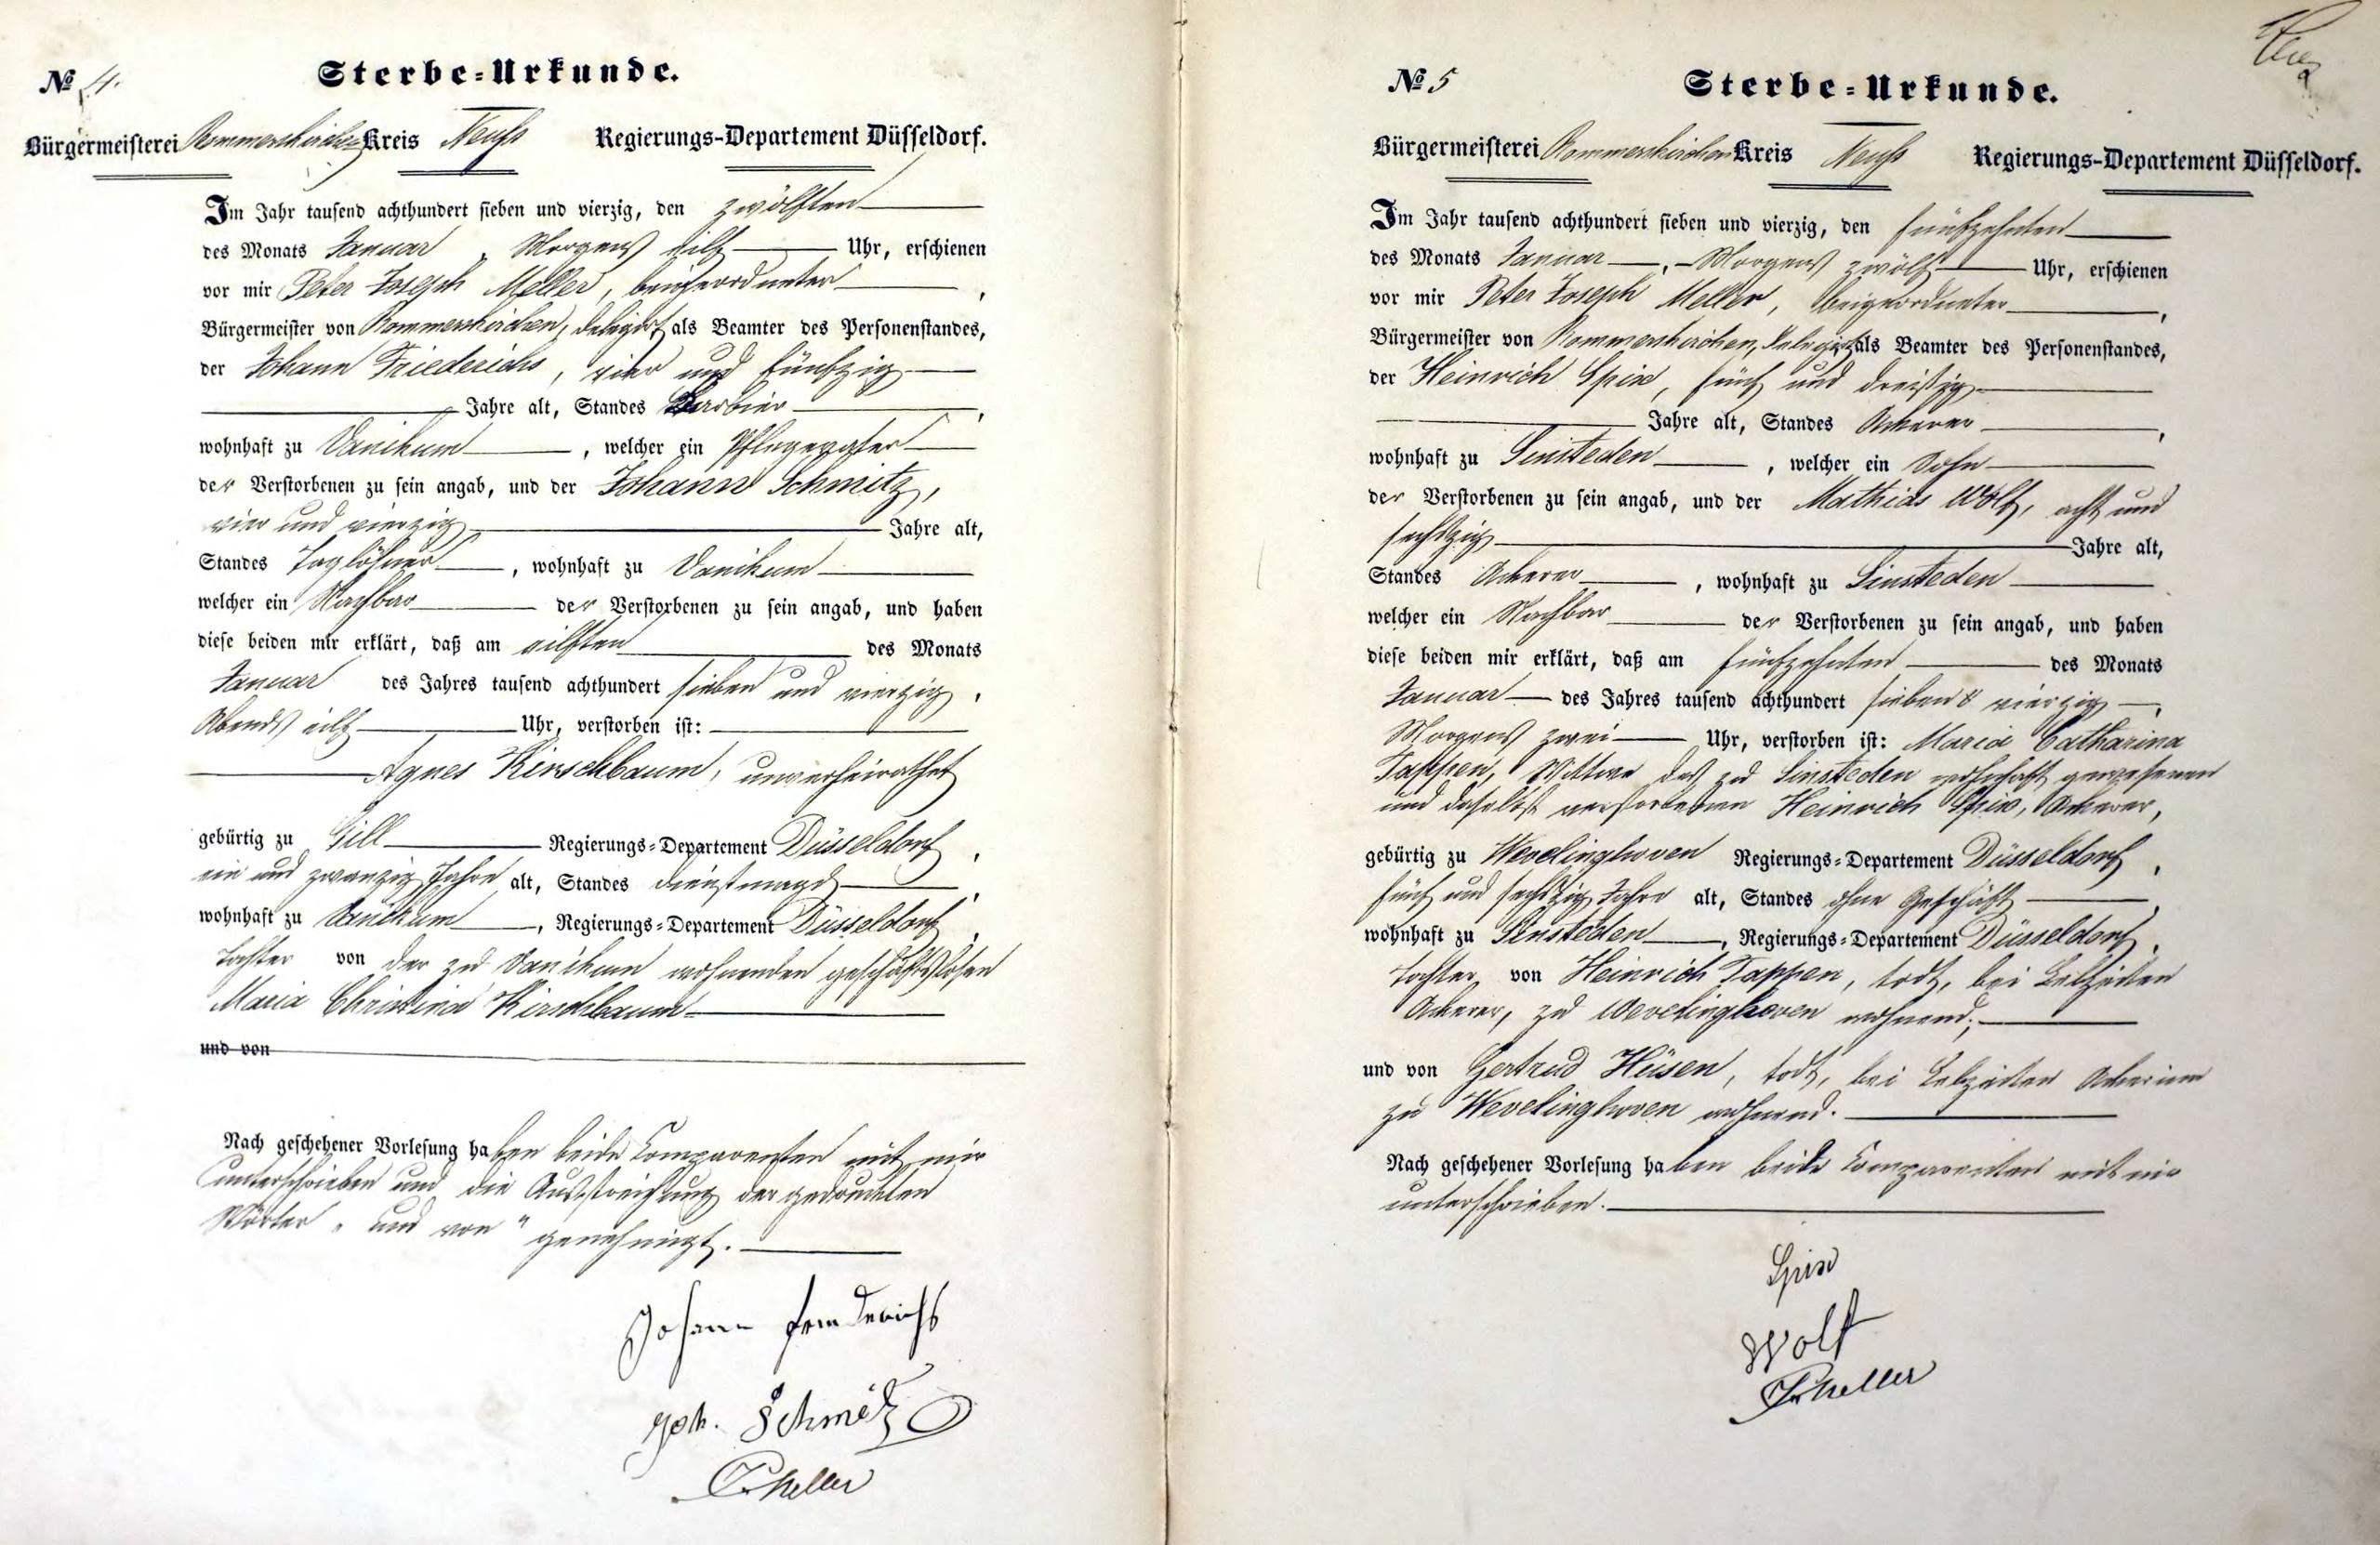 № 4.
Sterbe-Urkunde.
Bürgermeisterei Rommerskirchen Kreis Neuß Regierungs-Departement Düsseldorf.
Im Jahr tausend achthundert sieben und vierzig, den zwölften
des Monats Januar, Morgens eilf Uhr, erschienen
vor mir Peter Joseph Meller, beigeordneter,
Bürgermeister von Rommerskirchen, delegirt als Beamter des Personenstandes,
der Johann Friederichs, vier und fünfzig
Jahre alt, Standes Barbier,
wohnhaft zu Vanikum, welcher ein Pflegevater
der Verstorbenen zu sein angab, und der Johann Schmitz,
vier und vierzig Jahre alt,
Standes Taglöhner, wohnhaft zu Vanikum
welcher ein Nachbar der Verstorbenen zu sein angab, und haben
diese beiden mir erklärt, daß am eilften des Monats
Januar des Jahres tausend achthundert sieben und vierzig,
Abends eilf Uhr, verstorben ist:
Agnes Kirschbaum, unverheirathet
gebürtig zu Gill Regierungs-Departement Düsseldorf,
ein und zwanzig Jahre alt, Standes dienstmagd,
wohnhaft zu Vanikum, Regierungs-Departement Düsseldorf,
Tochter von der zu Vanikum wohnenden geschäftslosen
Maria Christina Kirschbaum
und von
Nach geschehener Vorlesung haben beide Comparenten mit mir
unterschrieben und die Ausstreichung der gedruckten
Wörter „und von" genehmigt.
Johann Friederichs
Joh. Schmitz
Meller
№ 5
Sterbe-Urkunde.
Bürgermeisterei Rommerskirchen Kreis Neuß Regierungs-Departement Düsseldorf.
Im Jahr tausend achthundert sieben und vierzig, den fünfzehnten
des Monats Januar, Morgens zwölf Uhr, erschienen
vor mir Peter Joseph Meller, Beigeordneter,
Bürgermeister von Rommerskirchen, delegirt als Beamter des Personenstandes,
der Heinrich Spix, fünf und dreißig
Jahre alt, Standes Ackerer,
wohnhaft zu Sinsteden, welcher ein Sohn
der Verstorbenen zu sein angab, und der Mathias Wolf, acht und
sechszig Jahre alt,
Standes Ackerer, wohnhaft zu Sinsteden
welcher ein Nachbar der Verstorbenen zu sein angab, und haben
diese beiden mir erklärt, daß am fünfzehnten des Monats
Januar des Jahres tausend achthundert sieben & vierzig,
Morgens zwei Uhr, verstorben ist: Maria Catharina
Tappen, Wittwe des zu Sinsteden wohnhaft gewesenen
und daselbst verstorbenen Heinrich Spix, Ackerer,
gebürtig zu Wevelinghoven Regierungs-Departement Düsseldorf,
fünf und sechszig Jahre alt, Standes ohne Geschäft,
wohnhaft zu Sinsteden, Regierungs-Departement Düsseldorf,
Tochter von Heinrich Tappen, todt, bei Lebzeiten
Ackerer, zu Wevelinghoven wohnend;
und von Gertrud Hüsen, todt, bei Lebzeiten Ackerinn
zu Wevelinghoven wohnend.
Nach geschehener Vorlesung haben beide Comparenten mit mir
unterschrieben.
Spix
Wolf
Meller